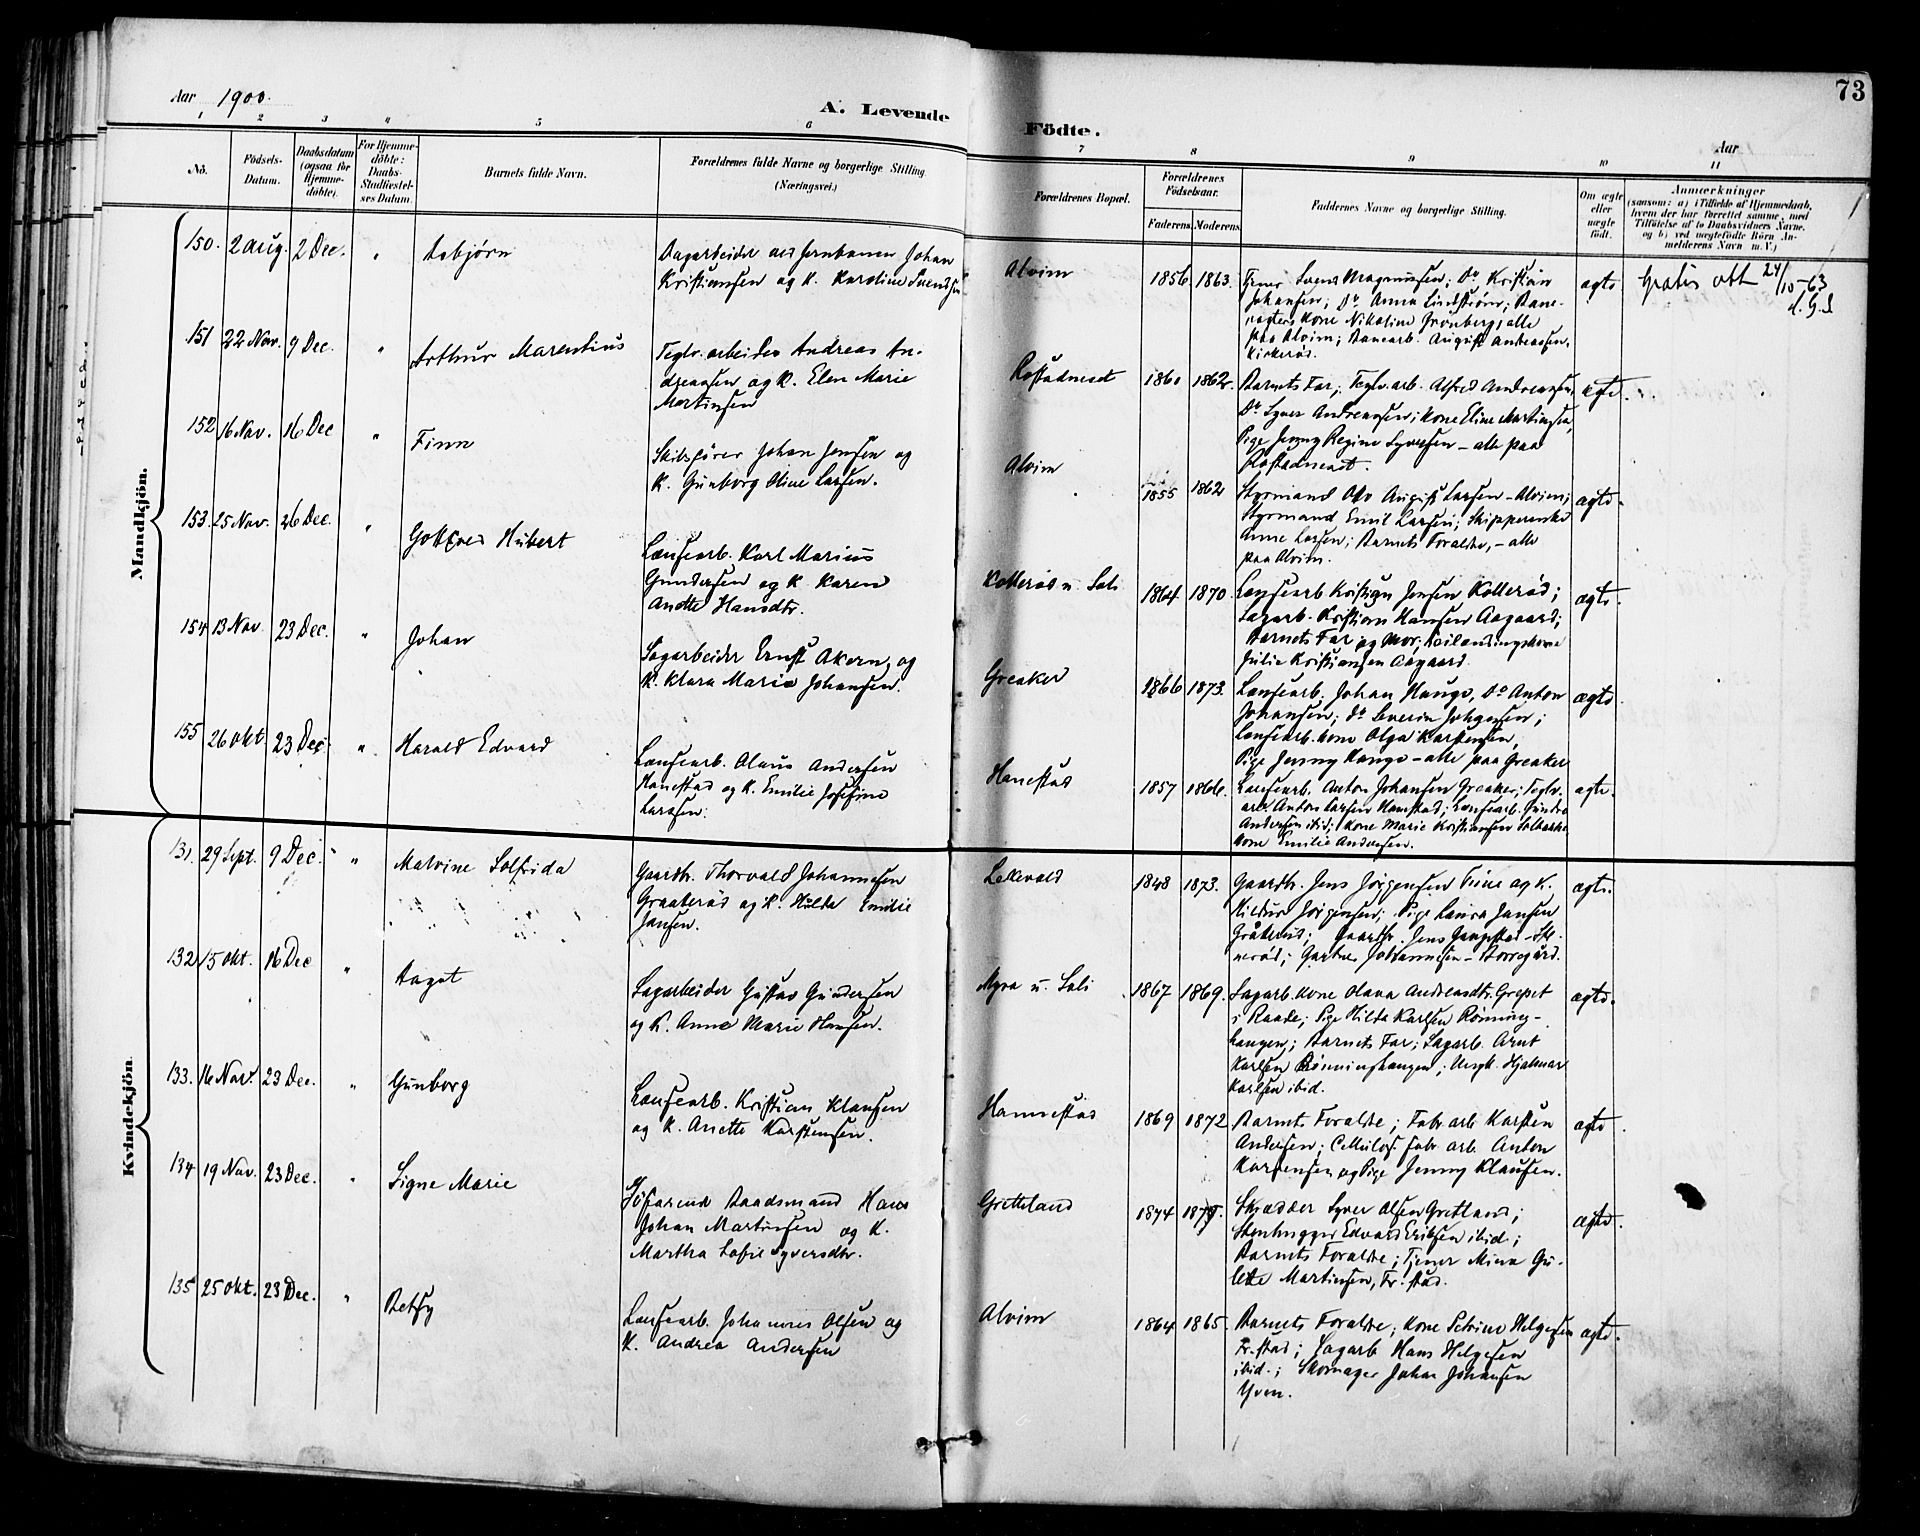 73
Aar 1900.
A. Levende Födte.
Aar
1 2 3 4 5 6 7 8 9 10 11
No.
Födsels-Datum.
Daabsdatum (ogsaa for Hjemme-döbte).
For Hjemme-döbte: Daabs-Stadfæstel-ses Datum.
Barnets fulde Navn.
Forældrenes fulde Navne og borgerlige Stilling. (Næringsvei.)
Forældrenes Bopæl.
Forældrenes Födselsaar.
Faderens. Moderens.
Faddernes Navne og borgerlige Stilling.
Om ægte eller uægte födt.
Anmærkninger
(saasom: a) i Tilfælde af Hjemmedaab,
hvem der har forrettet samme, med
Tilföielse af to Daabsvidners Navne.
og b) ved uægtefödte Börn An-
melderens Navn m. V.)
Mandkjön.
150. 2 Aug. 2 Dec. " Asbjørn
Dagarbeider ved Jernbanen Johan
Kristiansen og K. Karoline Svendsen
Alvim 1856 1863.
Tjener Svend Magnussen; Do Kristian
Johansen; Do Anna Lindstrøm; Bane-
vogters Kone Nikoline Grønberg, alle
paa Alvim; Banearb. August Andreassen,
Kirkerød.
ægte Gratis att 24/10-63
151 22 Nov. 9 Dec. " Arthur Marentius
Teglv.arbeider Andreas An-
dreassen og K. Elen Marie
Martinsen
Rostadneset 1860 1862.
Barnets Far; Teglv.arb. Alfred Andreassen,
Do Syver Andreassen; Kone Eline Martinsen,
Pige Jenny Regine Syversen - alle paa
Rostadneset.
ægte.
152 16 Nov. 16 Dec " Finn
Skibsfører Johan Jensen og
K. Gunborg Oline Larsen.
Alvim 1855 1862
Styrmand Otto August Larsen - Alvim;
Styrmand Emil Larsen; Skipperenke
Anne Larsen; Barnets Foraldre, - alle
paa Alvim.
ægte.
153. 25 Nov. 26 Dec. " Gottfred Hubert
Lænsearb. Karl Marius
Gundersen og K. Karen
Anette Hansdtr.
Kollerød u. Soli 1864 1870.
Lænsearb. Kristian Jensen Kollerød;
Sagarb. Kristian Hansen Aagaard;
Barnets Far og Mor;
Julie Kristiansen Aagaard.
ægte.
154 13 Nov 23 Dec. " Johan
Sagarbeider Ernst Akern, og
K. Klara Maria Johansen.
Greaker 1866 1873.
Lænsearb. Johan Hauge, Do Anton
Johansen; Do Severin Johansen;
Lænsearb. kone Olga Karstensen,
Pige Jenny Hauge - alle paa Greaker
ægte
155 26 Okt 23 Dec. " Harald Edvard
Lænsearb. Olaus Andersen
Hanestad og K. Emilie Josefine
Larssen.
Hanestad 1857 1866.
Lænsearb. Anton Johansen Greaker; Teglv.
arb Anton Larsen Hanestad; Lænsearb. Gunder
Andersen ibid; Kone Marie Kristiansen
Kone Emilie Andersen.
ægte.
Kvindekjön.
131. 29 Sept. 9 Dec. " Malvine Solfrida
Gaardbr. Thorvald Johannesen
Graaterød og K. Hulda Emilie
Jansen.
Lekevold 1848 1873.
Gaardbr. Jens Jørgensen Tune og K.
Hildur Jørgensen; Pige Laura Jansen
Gråterød; Gaardbr. Jens
nerød; Gartner Johannesen - Borregård.
ægte.
132 15 Okt. 16 Dec " Dagot
Sagarbeider Gustav Gundersen
og K. Anne Marie Hansen.
Myra u. Soli 1867 1869.
Sagarb. kone Olava Andreasdtr. Grepet
i Raade; Pige Hilda Karlsen Rønning-
haugen; Barnets Far; Sagarb. Arnt
Karlsen Rønninghaugen; Ungk. Hjalmar
Karlsen ibid.
ægte.
133. 16 Nov. 23 Dec. " Gunborg
Lænsearb. Kristian Klausen
og K. Anette Karstensen.
Hannestad 1869 1872
Barnets Foraldre; Fabr. arb Karsten
Andersen; Cellulos. fabr. arb. Anton
Karstensen og Pige Jenny Klausen.
ægte
134 19 Nov. 23 Dec. " Signe Marie
Søfarende Baadsmand Hans
Johan Martinsen og K.
Martha Sofie Syversdtr.
Gretteland 1874
Skrædder Syver Olsen Gretland;
Stenhugger Edvard Eriksen ibid;
Barnets Foraldre; Tjener Mina Gu-
lette Martinsen, Fr.stad.
ægte.
135 25 Okt. 23 Dec. " Betsy
Lænsearb. Johannes Olsen og
K. Andrea Andersen
Alvim 1864 1865.
Barnets Foraldre; Kone Petrine Helgesen
Fr.stad; Sagarb Hans Helgesen
ibid.; Skomager Johan Johansen
Yven.
ægte.